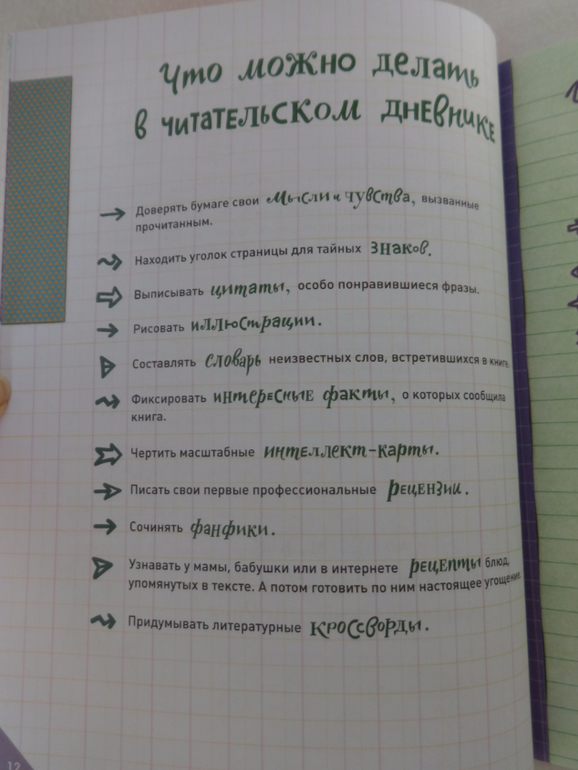 Что можно делать
в читательском дневнике
Доверять бумаге свои мысли и чувства, вызванные
прочитанным.
Находить уголок страницы для тайных знаков.
Выписывать цитаты, особо понравившиеся фразы.
Рисовать иллюстрации.
Составлять словарь неизвестных слов, встретившихся в книге.
Фиксировать интересные факты, о которых сообщила
книга.
Чертить масштабные интеллект-карты.
Писать свои первые профессиональные рецензии.
Сочинять фанфики.
Узнавать у мамы, бабушки или в интернете рецепты блюд,
упомянутых в тексте. А потом готовить по ним настоящее угощение.
Придумывать литературные кроссворды.
12